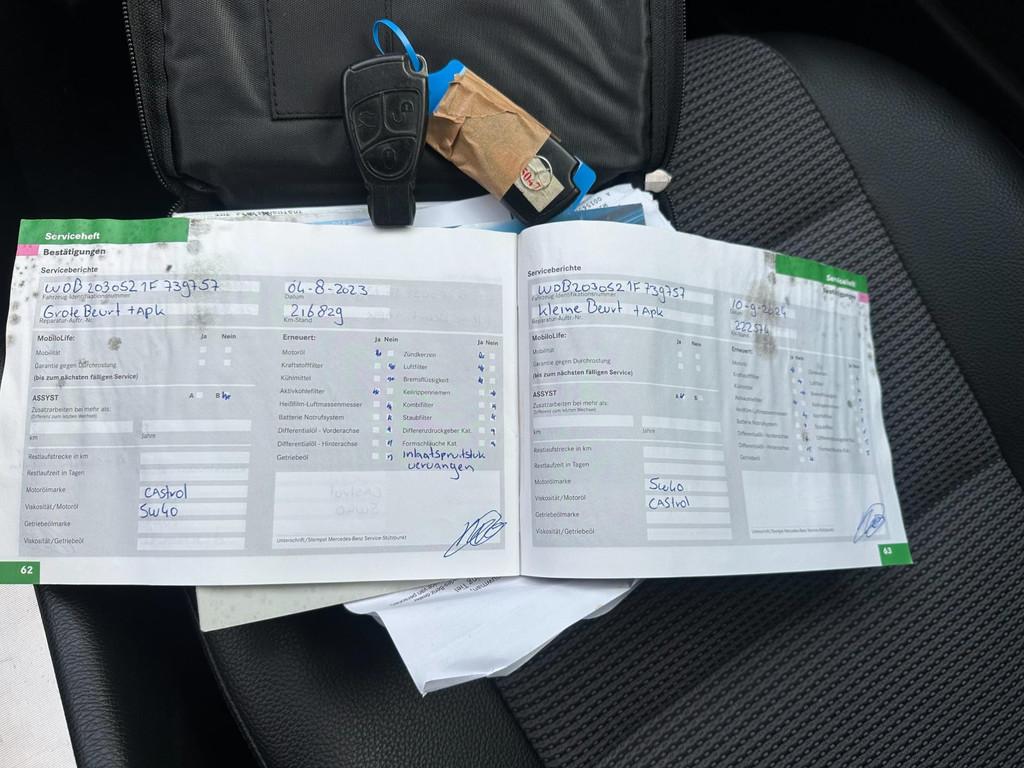 Serviceheft
Bestätigungen
Serviceberichte
WDB2030521F739757
04-8-2023
Fahrzeug-Identifikationsnummer
Datum
Grote Beurt + Apk
216829
Reparatur-Auftr.-Nr.
Km-Stand
MobiloLife:
Ja Nein
Mobilität
Garantie gegen Durchrostung
(bis zum nächsten fälligen Service)
ASSYST
A
B
Zusatzarbeiten bei mehr als:
(Differenz zum letzten Wechsel)
km
Jahre
Restlaufstrecke in km
Restlaufzeit in Tagen
Motorölmarke
castrol
Viskosität/Motoröl
5W40
Getriebeölmarke
Viskosität/Getriebeöl
Erneuert:
Ja Nein
Ja Nein
Motoröl
Zündkerzen
Kraftstofffilter
Luftfilter
Kühlmittel
Bremsflüssigkeit
Aktivkohlefilter
Keilrippenriemen
Heißfilm-Luftmassenmesser
Kombifilter
Batterie Notrufsystem
Staubfilter
Differentialöl - Vorderachse
Differenzdruckgeber Kat.
Differentialöl - Hinterachse
Formschläuche Kat.
Getriebeöl
inlaatspruitstuk
vervangen
Unterschrift/Stempel Mercedes-Benz Service-Stützpunkt
62
Serviceheft
Bestätigungen
Serviceberichte
WDB2030521F739757
10-9-2024
Fahrzeug-Identifikationsnummer
kleine Beurt + Apk
Reparatur-Auftr.-Nr.
MobiloLife:
Ja Nein
Mobilität
Garantie gegen Durchrostung
(bis zum nächsten fälligen Service)
ASSYST
Zusatzarbeiten bei mehr als:
(Differenz zum letzten Wechsel)
km
Jahre
Restlaufstrecke in km
Restlaufzeit in Tagen
Motorölmarke
5W40
Viskosität/Motoröl
castrol
Getriebeölmarke
Viskosität/Getriebeöl
Erneuert:
Ja Nein
Motoröl
Kraftstofffilter
Kühlmittel
Batterie Notrufsystem
Differentialöl - Vorderachse
Differentialöl - Hinterachse
Getriebeöl
Unterschrift/Stempel Mercedes-Benz Service-Stützpunkt
63